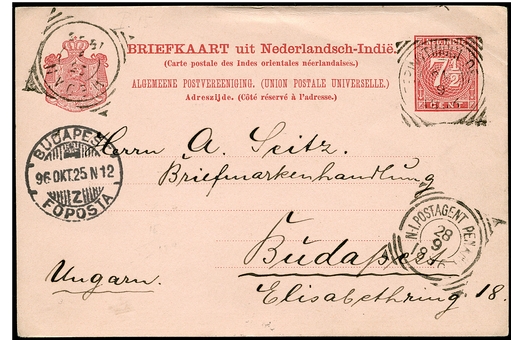 BRIEFKAART uit Nederlandsch-Indië.
(Carte postale des Indes orientales néerlandaises.)
ALGEMEENE POSTVEREENIGING. (UNION POSTALE UNIVERSELLE.)
Adreszijde. (Côté réservé à l'adresse.)
7½
BUDAPEST
96 OKT. 25 N 12
Z
FOPOSTA
Herrn A. Seitz.
Briefmarkenhandlung
Budapest
Ungarn.
Elisabethring 18.
N.I. POSTAGENT
28
9
1896